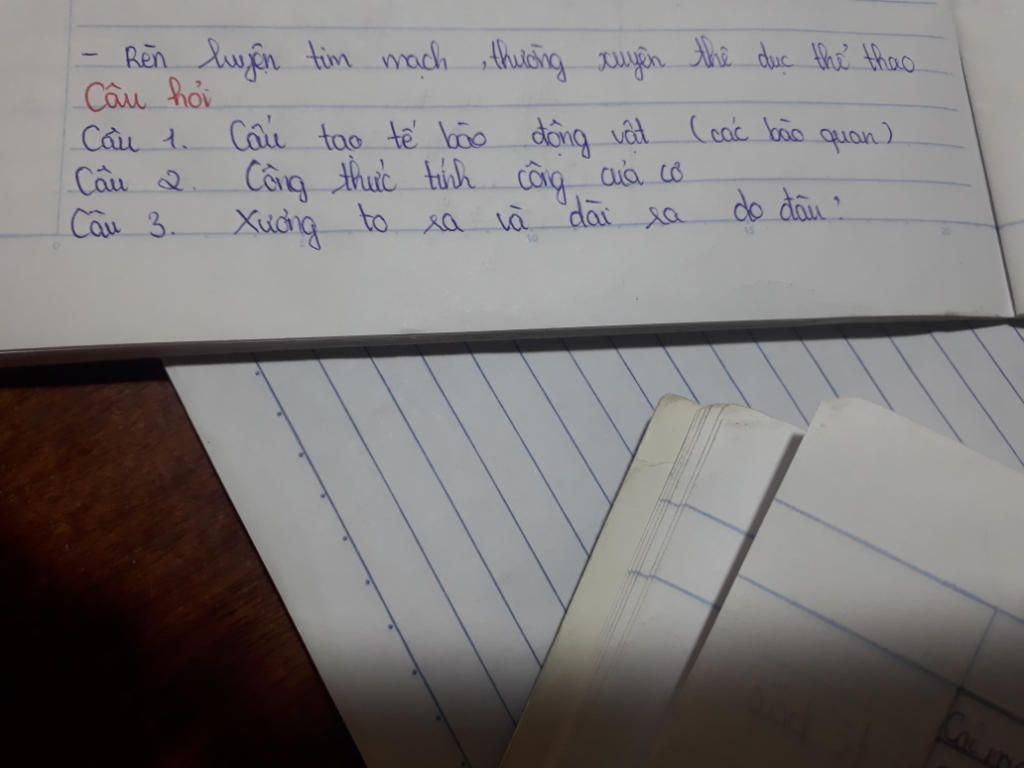 - Rèn luyện tim mạch, thường xuyên thể dục thể thao
Câu hỏi
Câu 1. Cấu tạo tế bào động vật (các bào quan)
Câu 2. Công thức tính công của cơ
Câu 3. Xương to ra và dài ra do đâu?